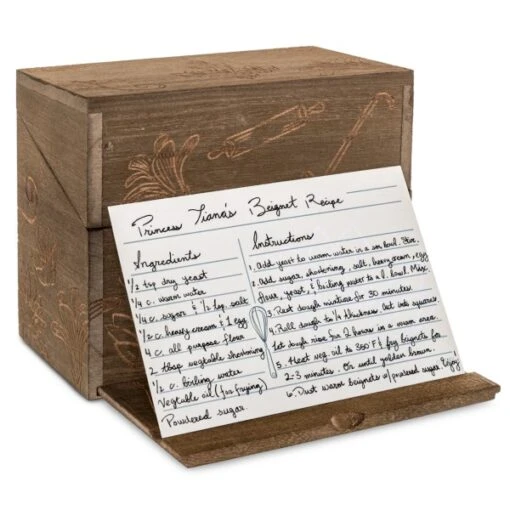 Princess Tiana's Beignet Recipe
Ingredients
1/2 tsp dry yeast
1/4 c. warm water
1/4 c. sugar & 1/2 tsp. salt
1/2 c. heavy cream & 1 egg
4 c. all purpose flour
2 tbsp vegetable shortening
1/2 c. boiling water
Vegetable oil (for frying)
Powdered sugar.
Instructions
1. Add yeast to warm water in a sm bowl. Stir.
2. Add sugar, shortening, salt, heavy cream, egg
flour, yeast, & boiling water to a l. bowl. Mix
3. Rest dough mixture for 30 minutes.
4. Roll dough to 1/4 thickness. Cut into squares.
Let dough rise for 2 hours in a warm area.
5. Heat veg. oil to 350 F & fry beignets for
2-3 minutes. Or until golden brown.
6. Dust warm beignets w/ powdered sugar. Enjoy!